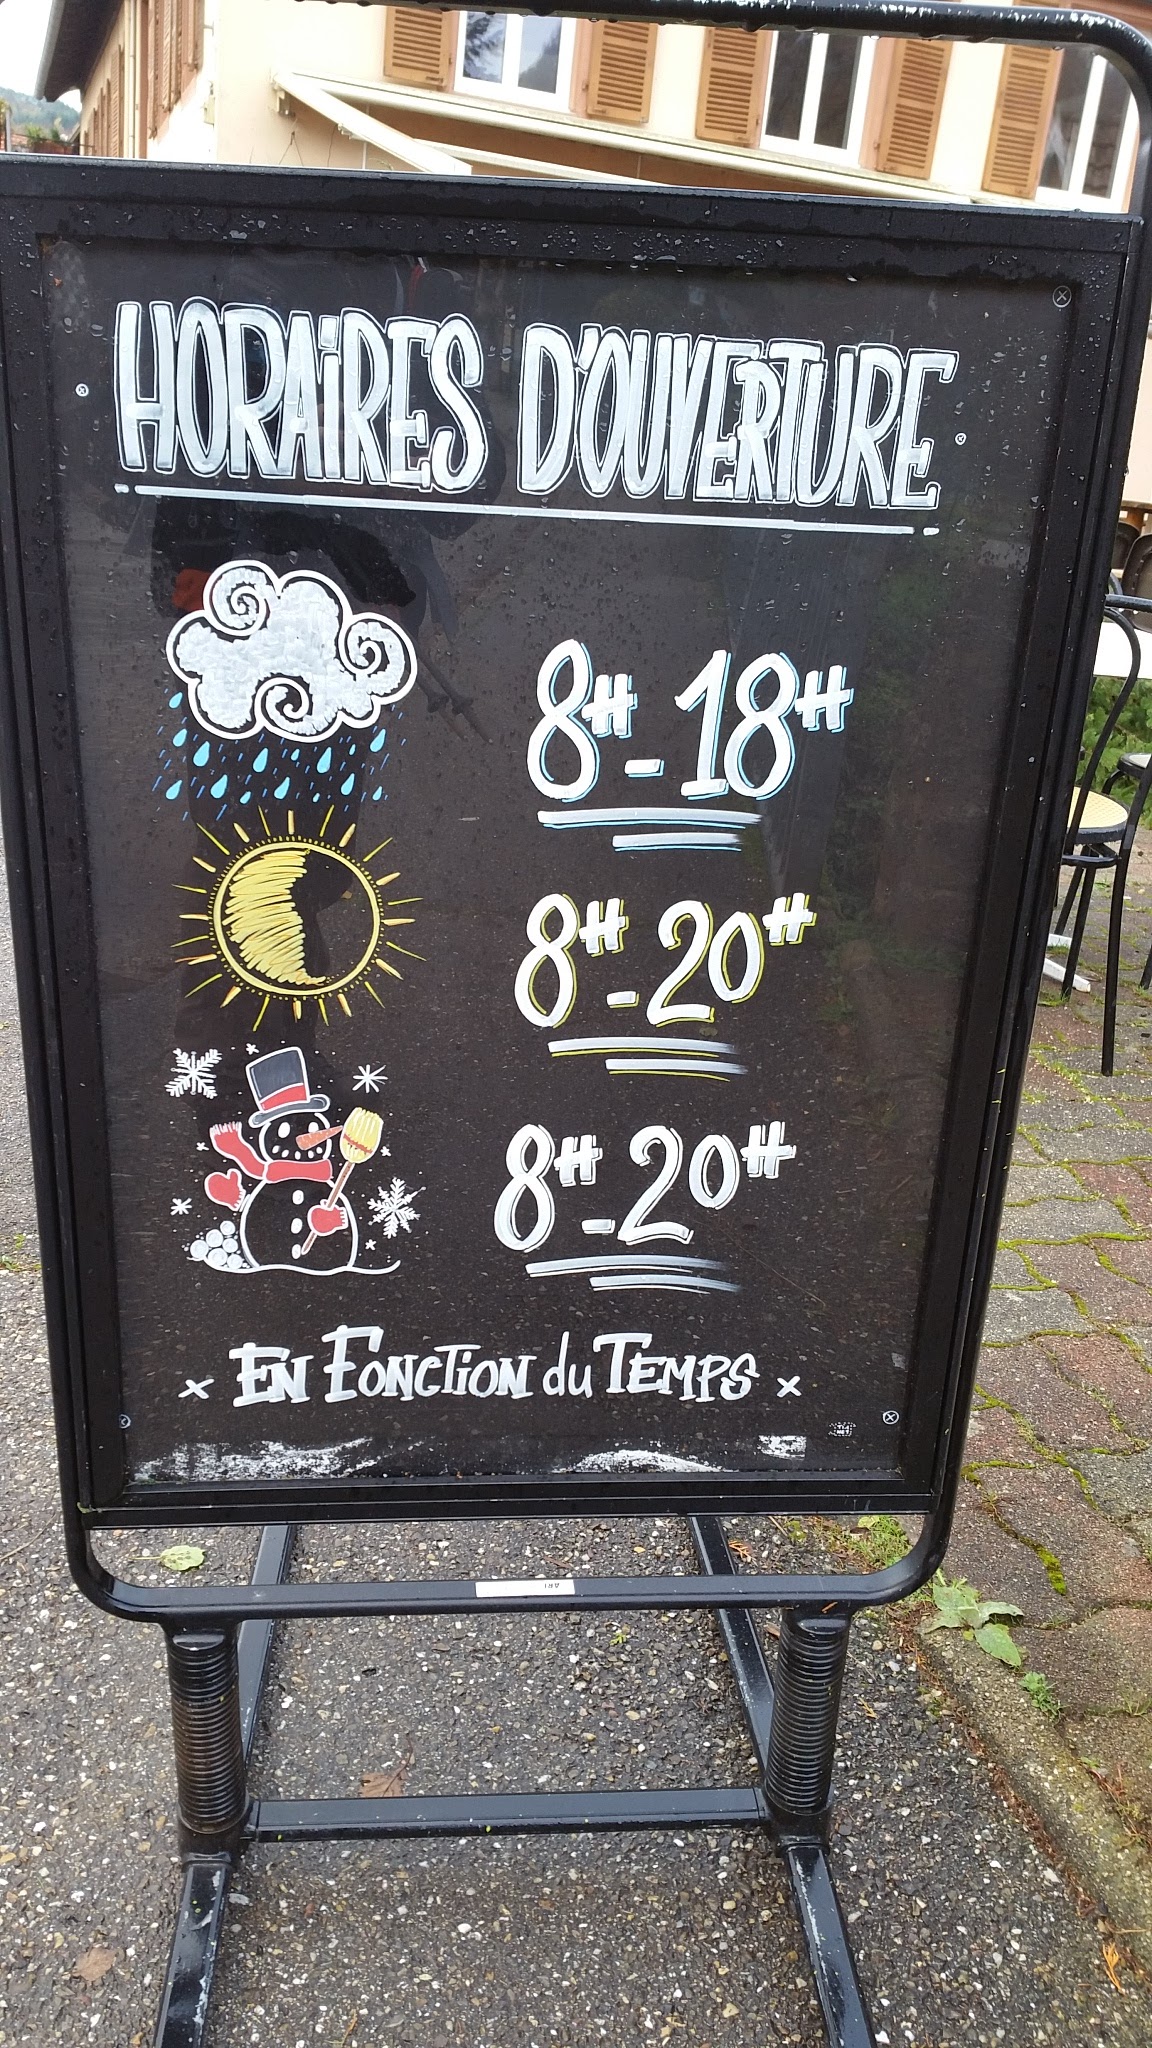 HORAIRES D'OUVERTURE
8H - 18H
8H - 20H
8H - 20H
x EN FONCTION du TEMPS x